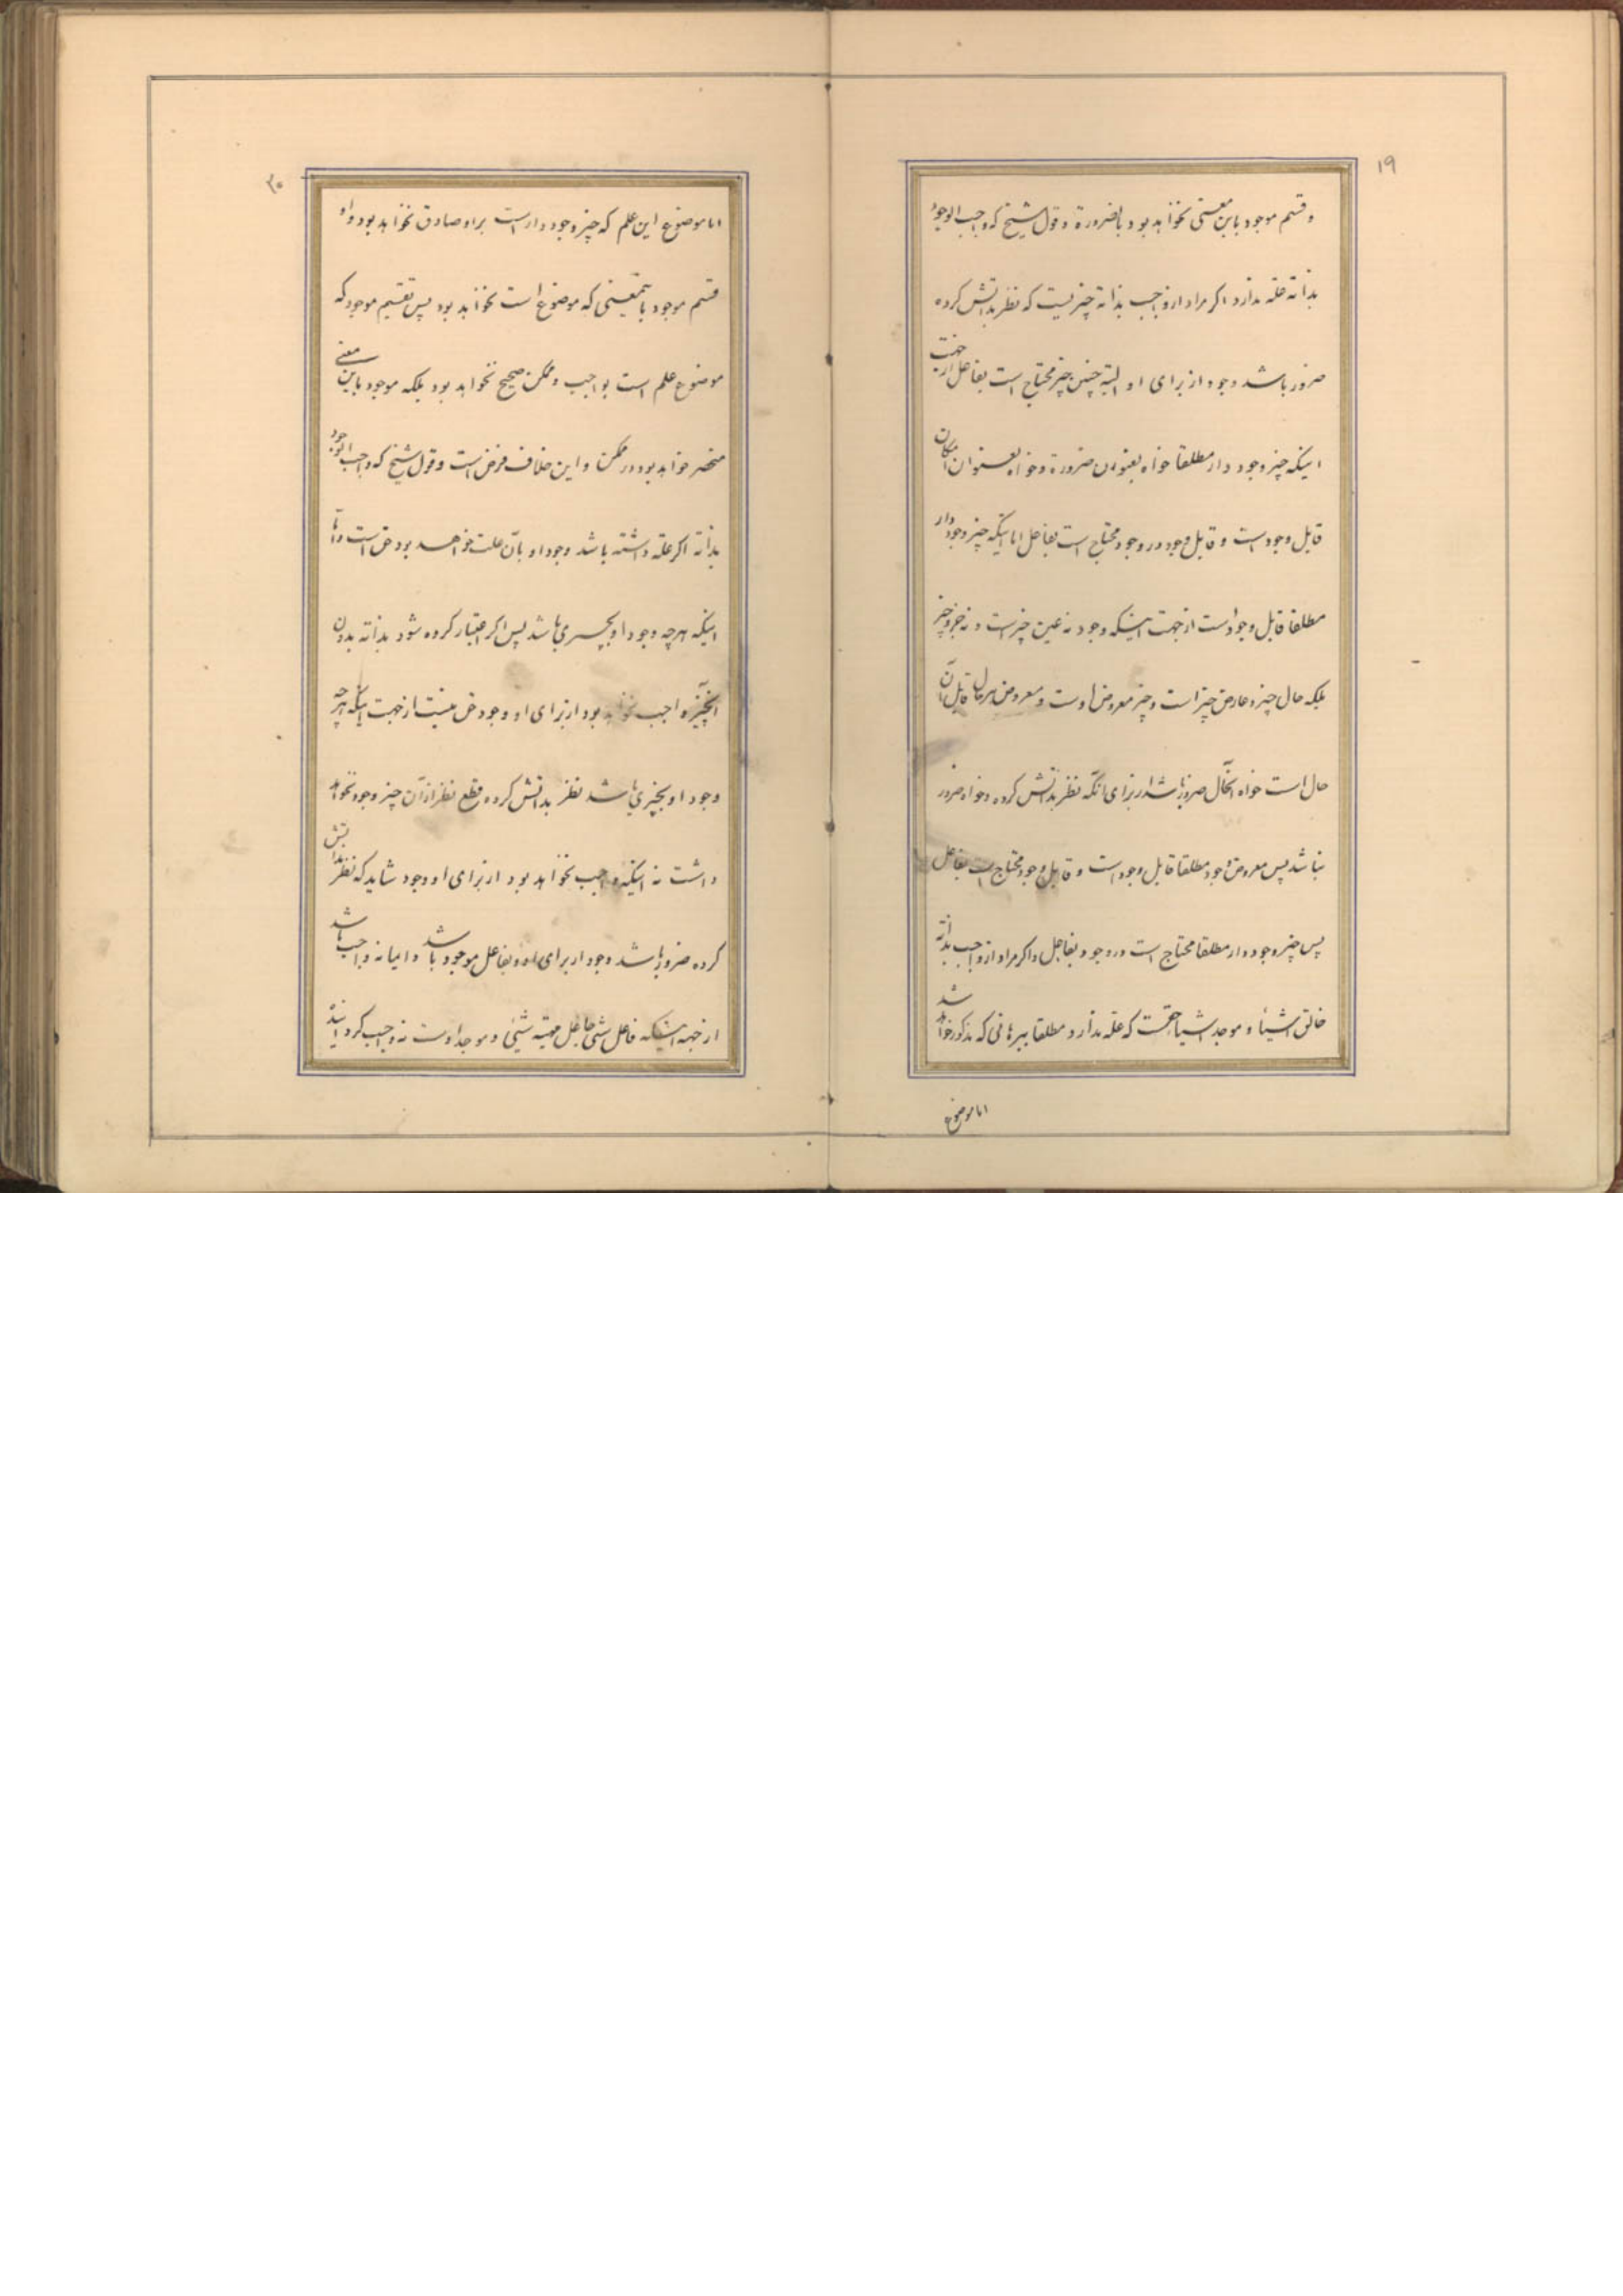 ۱۹
و قسم موجود باین معنی نخواهد بود بالضرورة و قول شیخ که واجب الوجود
بذاته علّه ندارد اکر مراد از واجب بذاته چیزیست که نظر بذاتش کرده
ضرور باشد وجود از برای او البته چنین چیز محتاج است بفاعل از جهت
اینکه چیز وجود دار مطلقا خواه بعنوان ضرورة و خواه بعنوان امکان
قابل وجود است و قابل وجود در وجود محتاج است بفاعل اما اینکه چیز وجود دار
مطلقا قابل وجود است از جهت اینکه وجود نه عین چیز است و نه جزو چیز
بلکه حال چیز و عارض چیز است و چیز معروض اوست و معروض هر حال قابل آن
حال است خواه آنحال ضرور باشد از برای آنکه نظر بذاتش کرده و خواه ضرور
نباشد پس معروض وجود مطلقا قابل وجود است و قابل وجود محتاج است بفاعل
پس چیز وجود دار مطلقا محتاج است در وجود بفاعل و اکر مراد از واجب بذاته
خالق اشیاء و موجد اشیا حقست که علّه ندارد مطلقا ببرهانی که مذکور خواهد شد
اما موضوع
۲۰
اما موضوع این علم که چیز وجود دار است بر او صادق نخواهد بود و او
قسم موجود باینمعنی که موضوع است نخواهد بود پس تقسیم موجود که
موضوع علم است بواجب و ممکن صحیح نخواهد بود بلکه موجود باین معنی
منحصر خواهد بود در ممکن و این خلاف فرض است و قول شیخ که واجب الوجود
بذاته اکر علّه داشته باشد وجود او بآن علت خواهد بود حق است و اما
اینکه هرچه وجود او بچیزی باشد پس اکر اعتبار کرده شود بذاته بدون
آنچیز واجب نخواهد بود از برای او وجود حق نیست از جهت اینکه هر چه
وجود او بچیزی باشد نظر بذاتش کرده قطع نظر از آن چیز وجود نخواهد
داشت نه اینکه واجب نخواهد بود از برای او وجود شاید که نظر بذاتش
کرده ضرور باشد وجود از برای او و بفاعل موجود باشد و ایما نه واجب باشد
از جهه اینکه فاعل شئ جاعل مهیّة شیئی و موجد اوست نه واجب کرداننده